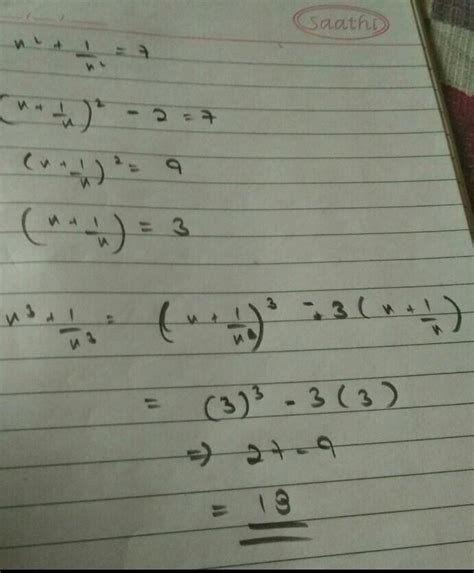 Saathi
x² + 1/x² = 7
(x + 1/x)² - 2 = 7
(x + 1/x)² = 9
(x + 1/x) = 3
x³ + 1/x³ = (x + 1/x)³ - 3(x + 1/x)
= (3)³ - 3(3)
⇒ 27 - 9
= 18